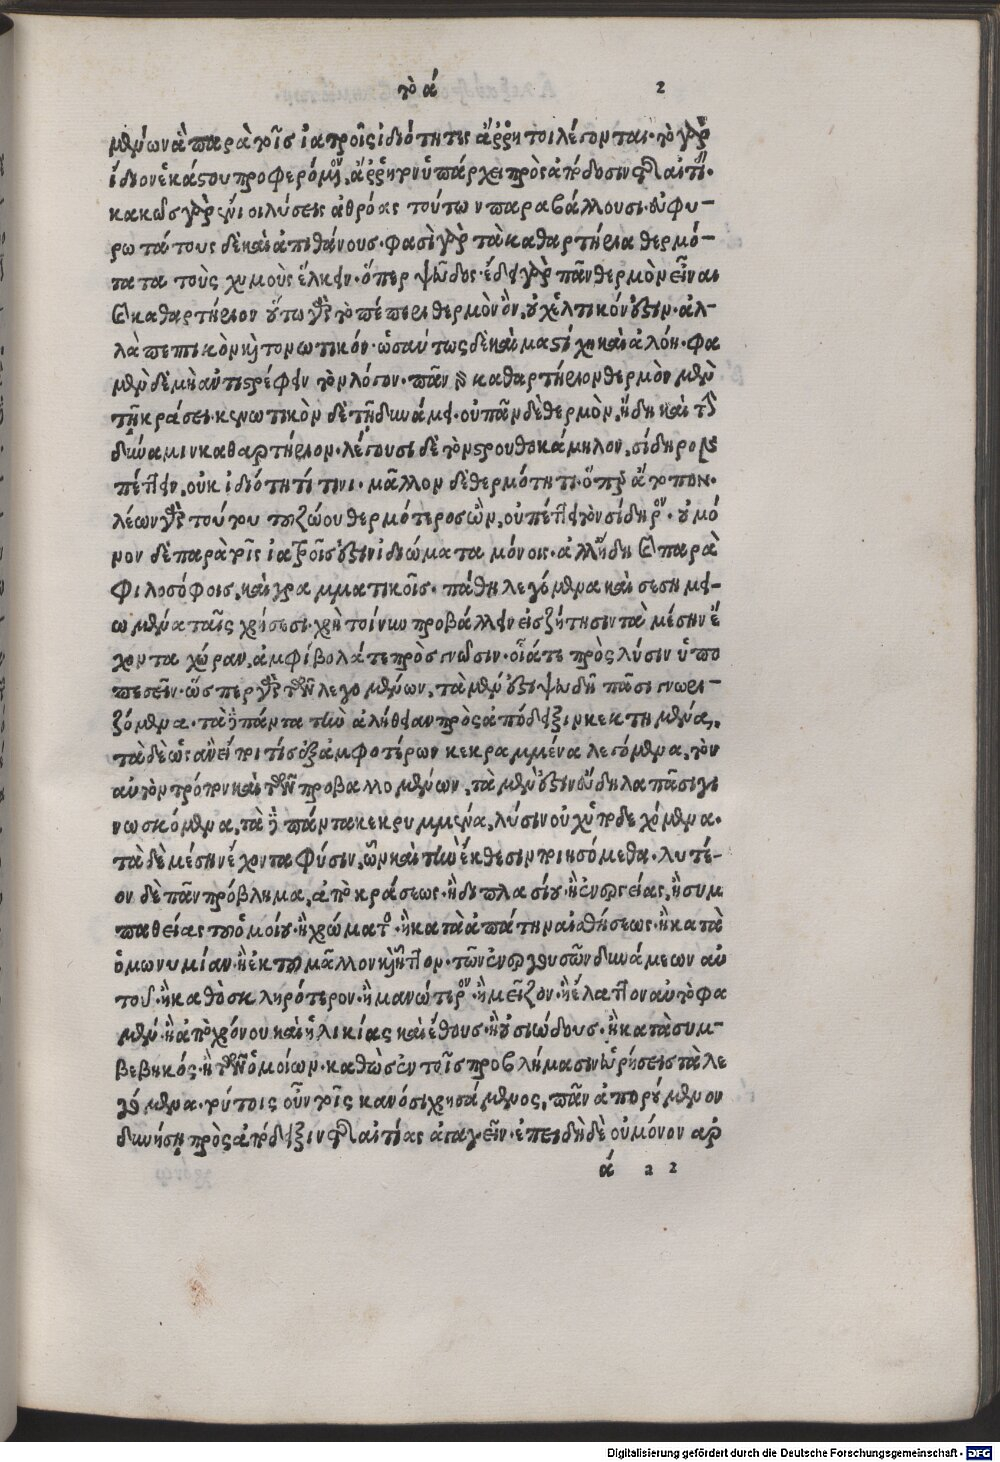 τὸ ά 2
μένων ἃ παρὰ τοῖς ἰατροῖς ἰδιότητες ἄῤῥητοι λέγονται· τὸ γὰρ
ἴδιον ἑκάστου προφερόμενον, ἄῤῥητον ὑπάρχει πρὸς ἀπόδοσιν τῆς αἰτίας·
κακῶς γὰρ ἔνιοι λύσεις ἀθρόας τούτων παραβάλλουσι· εὐφυ-
ρωτάτους δὲ καὶ ἀπιθάνους· φασὶ γὰρ τὰ καθαρτήρια θερμό-
τατα τοὺς χυμοὺς ἕλκειν· ὅπερ ψεῦδος· ἔδει γὰρ πᾶν θερμὸν εἶναι
καὶ καθαρτήριον οὕτω γοῦν τὸ πέπερι θερμὸν ὂν, οὐχ ἑλκτικόν ἐστιν· ἀλ-
λὰ πεπτικὸν καὶ τονωτικόν· ὡσαύτως δὲ καὶ μαστίχη καὶ ἀλόη· φα
μὲν δὲ μὴ ἀντιστρέφειν τὸν λόγον· πᾶν γὰρ καθαρτήριον θερμὸν μὲν
τῇ κράσει· κενωτικὸν δὲ τῇ δυνάμει· οὐ πᾶν δὲ θερμὸν, ἤδη καὶ τὴν
δύναμιν καθαρτήριον· λέγουσι δὲ τὸν στρουθοκάμηλον, σίδηρον
πέττειν, οὐκ ἰδιότητί τινι· μᾶλλον δὲ θερμότητι· ὅπερ ἄτοπον·
λέων γοῦν τούτου τοῦ ζώου θερμότερος ὢν, οὐ πέττει τὸν σίδηρον· οὐ μό
νον δὲ παρὰ τοῖς ἰατροῖς ἐστιν ἰδιώματα μόνοις· ἀλλ' ἤδη καὶ παρὰ
φιλοσόφοις, καὶ γραμματικοῖς· πάθη λεγόμενα καὶ σεσημει-
ωμένα ταῖς χρήσεσι· χρὴ τοίνυν προβάλλειν εἰς ζήτησιν τὰ μέσην ἔ
χοντα χώραν, ἀμφίβολά τε πρὸς γνῶσιν· οἷά τε πρὸς λύσιν ὑπο
πεσεῖν· ὥσπερ γοῦν τῶν λεγομένων, τὰ μέν ἐστι ψευδῆ πᾶσι γνωρι-
ζόμενα· τὰ δὲ πάντα τὴν ἀλήθειαν πρὸς ἀπόδειξιν κεκτημένα,
τὰ δὲ ὡς ἂν εἴποι τίς ἐξ ἀμφοτέρων κεκραμμένα λεγόμενα, τὸν
αὐτὸν τρόπον καὶ τῶν προβαλλομένων, τὰ μέν ἐστιν εὔδηλα πᾶσι γι
νωσκόμενα, τὰ δὲ πάντα κεκρυμμένα, λύσιν οὐχ ὑποδεχόμενα·
τὰ δὲ μέσην ἔχοντα φύσιν, ὧν καὶ τὴν ἔκθεσιν ποιησόμεθα· λυτέ-
ον δὲ πᾶν πρόβλημα, ἀπὸ κράσεως· ἢ διπλασίου· ἢ ἐνεργείας, ἢ συμ
παθείας τοῦ ὁμοίου· ἢ χρώματος· ἢ κατὰ ἀπάτην αἰσθήσεως· ἢ κατὰ
ὁμωνυμίαν· ἢ ἐκ τοῦ μᾶλλον καὶ ἧττον· τῶν ἐνεργουσῶν δυνάμεων αὐ
τοῦ· ἢ καθὸ σκληρότερον· ἢ μανώτερον· ἢ μεῖζον· ἢ ἔλαττον αὐτὸ φα
μέν· ἢ ἀπὸ χρόνου καὶ ἡλικίας καὶ ἔθους· ἢ οὐσιώδους· ἢ κατὰ συμ-
βεβηκός· ἢ τῶν ὁμοίων· καθὼς ἐν τοῖς προβλήμασιν εὑρήσεις τὰ λε
γόμενα· τούτοις οὖν τοῖς κανόσι χρησάμενος, πᾶν ἀπορούμενον
δυνήσῃ πρὸς ἀπόδειξιν τῆς αἰτίας ἀγαγεῖν· ἐπειδὴ δὲ οὐ μόνον ἀρ
ά a 2
Digitalisierung gefördert durch die Deutsche Forschungsgemeinschaft - DFG